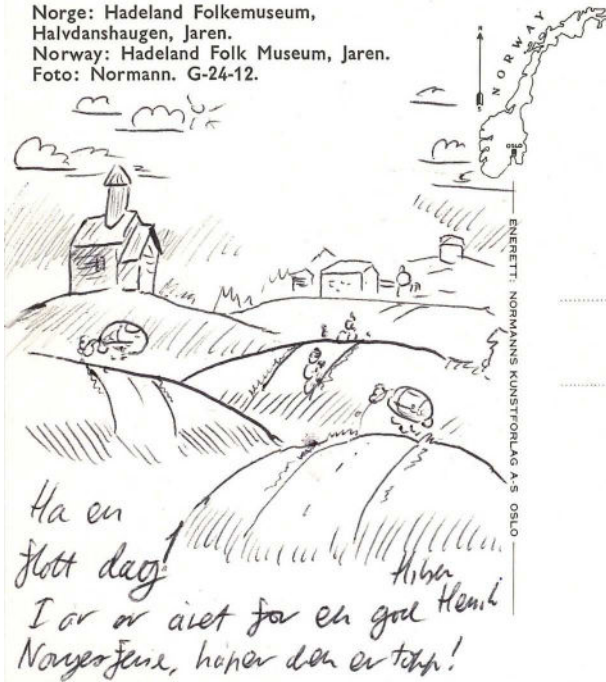 Norge: Hadeland Folkemuseum,
Halvdanshaugen, Jaren.
Norway: Hadeland Folk Museum, Jaren.
Foto: Normann. G-24-12.
N
S
NORWAY
OSLO
ENERETT: NORMANNS KUNSTFORLAG A-S OSLO
Ha en
flott dag!
Hilsen
Henrik
I år er året for en god
Norgesferie, håper den er topp!